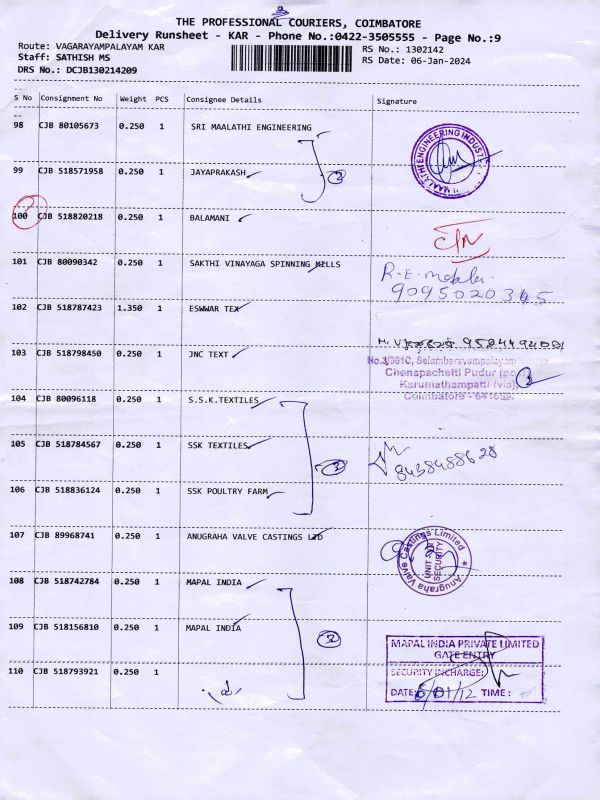 THE PROFESSIONAL COURIERS, COIMBATORE
Delivery Runsheet - KAR - Phone No.:0422-3505555 - Page No.:9
Route: VAGARAYAMPALAYAM KAR
RS No.: 1302142
Staff: SATHISH MS
RS Date: 06-Jan-2024
DRS No.: DCJB130214209
S No Consignment No Weight PCS Consignee Details Signature
98 CJB 80105673 0.250 1 SRI MAALATHI ENGINEERING
MAALATHI ENGINEERING
99 CJB 518571958 0.250 1 JAYAPRAKASH
2
100 CJB 518820218 0.250 1 BALAMANI
101 CJB 80090342 0.250 1 SAKTHI VINAYAGA SPINNING MILLS
9095020345
102 CJB 518787423 1.350 1 ESWWAR TEX
103 CJB 518798450 0.250 1 JNC TEXT
Chenspachetti Pudur
Karumathampatti (via)
Coimbatore
104 CJB 80096118 0.250 1 S.S.K.TEXTILES
105 CJB 518784567 0.250 1 SSK TEXTILES
3
8438488628
106 CJB 518836124 0.250 1 SSK POULTRY FARM
107 CJB 89968741 0.250 1 ANUGRAHA VALVE CASTINGS LTD
Anugraha Valve Castings Limited
SECURITY
108 CJB 518742784 0.250 1 MAPAL INDIA
109 CJB 518156810 0.250 1 MAPAL INDIA
MAPAL INDIA PRIVATE LIMITED
GATE ENTRY
SECURITY INCHARGE:
DATE: TIME:
110 CJB 518793921 0.250 1